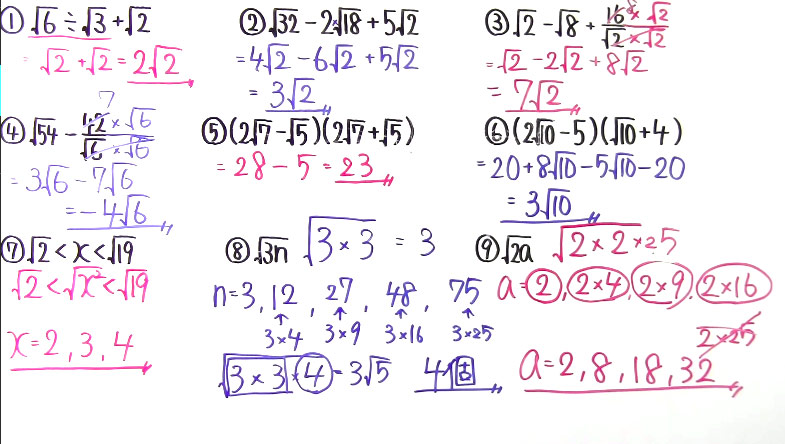 ① √6 ÷ √3 + √2
= √2 + √2 = 2√2
② √32 − 2√18 + 5√2
= 4√2 − 6√2 + 5√2
= 3√2
③ √2 − √8 + 16 × √2 / √2 × √2
8
= √2 − 2√2 + 8√2
= 7√2
④ √54 − 42 × √6 / √6 × √6
7
= 3√6 − 7√6
= −4√6
⑤ (2√7 − √5)(2√7 + √5)
= 28 − 5 = 23
⑥ (2√10 − 5)(√10 + 4)
= 20 + 8√10 − 5√10 − 20
= 3√10
⑦ √2 < x < √19
√2 < √x² < √19
x = 2, 3, 4
⑧ √3n √3×3 = 3
n = 3, 12, 27, 48, 75
↑ ↑ ↑ ↑
3×4 3×9 3×16 3×25
√3×3×4 = 3√5 4個
⑨ √2a √2×2×25
a = 2, 2×4, 2×9, 2×16
2×25
a = 2, 8, 18, 32